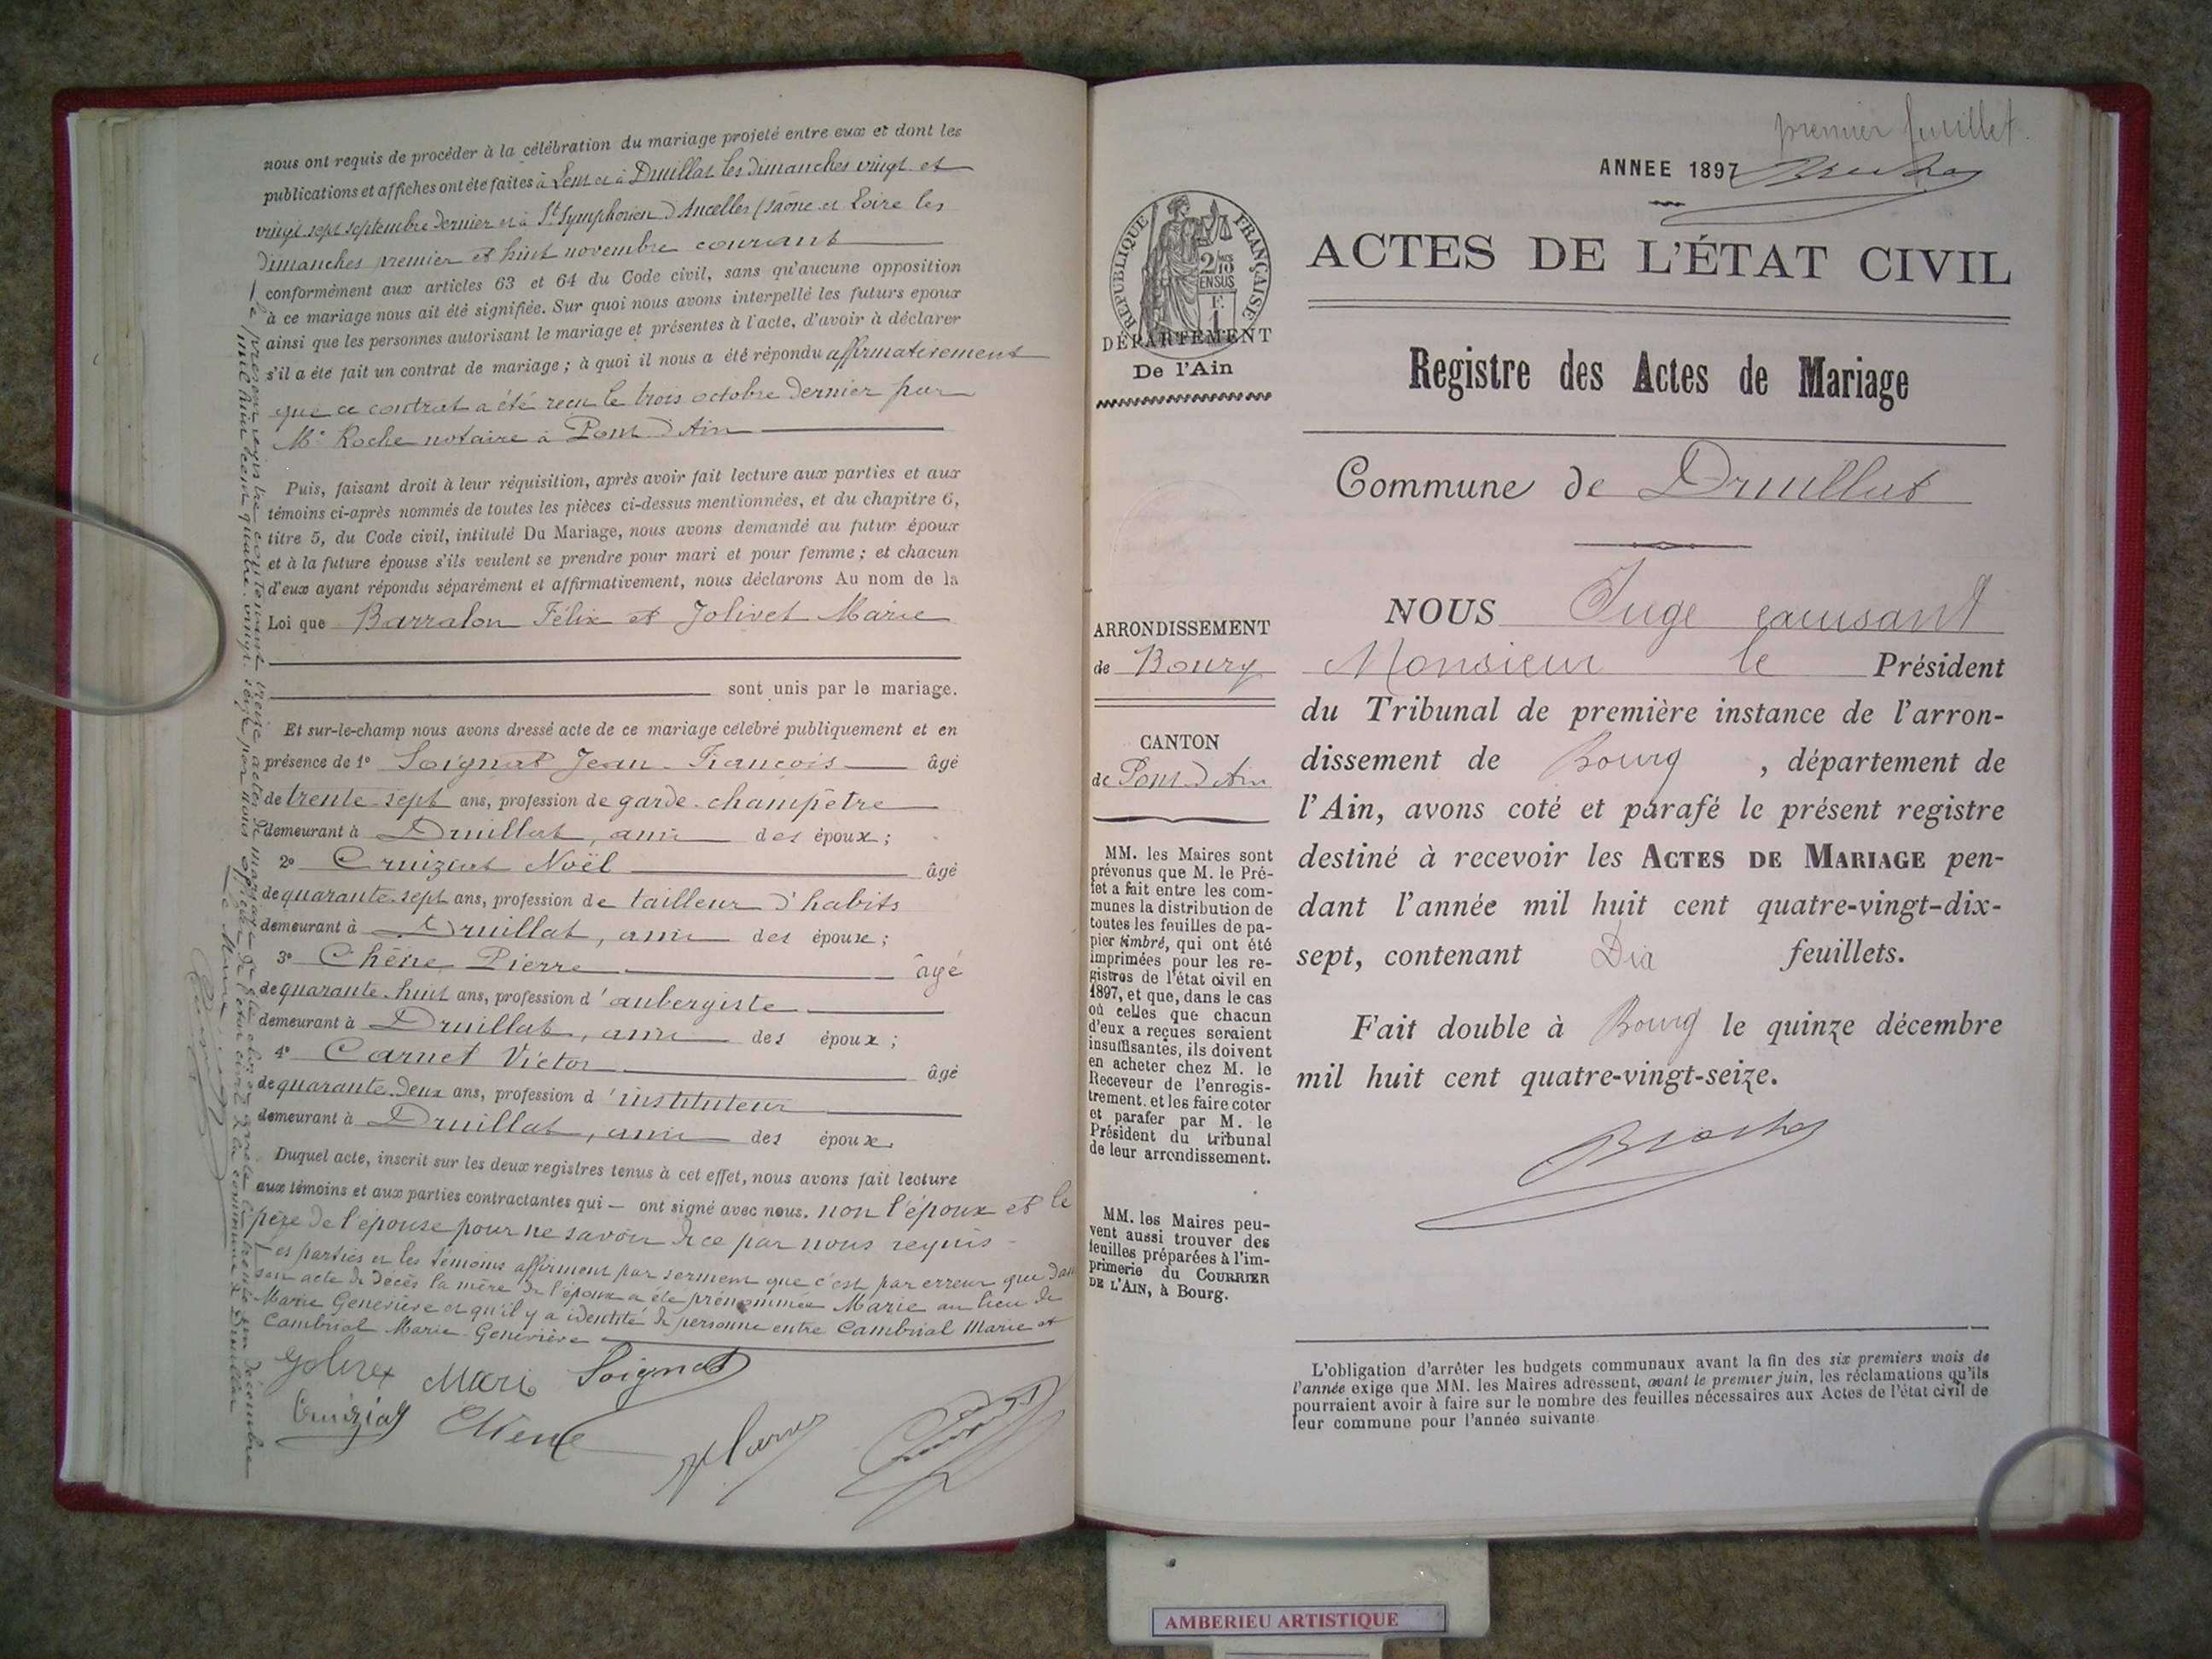 nous ont requis de procéder à la célébration du mariage projeté entre eux et dont les
publications et affiches ont été faites à Lent et à Druillat les dimanches vingt et
vingt sept septembre dernier et à St Symphorien d'Ancelles (Saône et Loire les
dimanches premier et huit novembre courant
conformément aux articles 63 et 64 du Code civil, sans qu'aucune opposition
à ce mariage nous ait été signifiée. Sur quoi nous avons interpellé les futurs époux
ainsi que les personnes autorisant le mariage et présentes à l'acte, d'avoir à déclarer
s'il a été fait un contrat de mariage ; à quoi il nous a été répondu affirmativement
que ce contrat a été reçu le trois octobre dernier par
Me Roche notaire à Pont d'Ain
Puis, faisant droit à leur réquisition, après avoir fait lecture aux parties et aux
témoins ci-après nommés de toutes les pièces ci-dessus mentionnées, et du chapitre 6,
titre 5, du Code civil, intitulé Du Mariage, nous avons demandé au futur époux
et à la future épouse s'ils veulent se prendre pour mari et pour femme ; et chacun
d'eux ayant répondu séparément et affirmativement, nous déclarons Au nom de la
Loi que Barralon Félix et Jolivet Marie
sont unis par le mariage.
Et sur-le-champ nous avons dressé acte de ce mariage célébré publiquement et en
présence de 1° Soignat Jean-François âgé
de trente-sept ans, profession de garde-champêtre
demeurant à Druillat, ami des époux ;
2° Cruiziat Noël âgé
de quarante-sept ans, profession de tailleur d'habits
demeurant à Druillat, ami des époux ;
3° Chêne Pierre âgé
de quarante-huit ans, profession d'aubergiste
demeurant à Druillat, ami des époux ;
4° Carnet Victor âgé
de quarante-deux ans, profession d'instituteur
demeurant à Druillat, ami des époux.
Duquel acte, inscrit sur les deux registres tenus à cet effet, nous avons fait lecture
aux témoins et aux parties contractantes qui — ont signé avec nous. non l'époux et le
père de l'épouse pour ne savoir de ce par nous requis —
Les parties et les témoins affirment par serment que c'est par erreur que dans
son acte de décès la mère de l'époux a été prénommée Marie au lieu de
Marie Geneviève et qu'il y a identité de personne entre Cambrial Marie et
Cambrial Marie-Geneviève
Marie Soignat
Cruiziat Chene
le présent registre contenant treize actes de mariage
mil huit cent quatre-vingt-seize par nous officier de l'état civil de la commune de Druillat
Le Maire
premier feuillet.
ANNEE 1897
RÉPUBLIQUE FRANÇAISE
2/10 EN SUS
F. 1
DÉPARTEMENT
De l'Ain
ACTES DE L'ÉTAT CIVIL
Registre des Actes de Mariage
Commune de Druillat
ARRONDISSEMENT
de Bourg
CANTON
de Pont d'Ain
MM. les Maires sont
prévenus que M. le Pré-
fet a fait entre les com-
munes la distribution de
toutes les feuilles de pa-
pier timbré, qui ont été
imprimées pour les re-
gistres de l'état civil en
1897, et que, dans le cas
où celles que chacun
d'eux a reçues seraient
insuffisantes, ils doivent
en acheter chez M. le
Receveur de l'enregis-
trement. et les faire coter
et parafer par M. le
Président du tribunal
de leur arrondissement.
MM. les Maires peu-
vent aussi trouver des
feuilles préparées à l'im-
primerie du COURRIER
DE L'AIN, à Bourg.
NOUS Juge excusant
Monsieur le Président
du Tribunal de première instance de l'arron-
dissement de Bourg, département de
l'Ain, avons coté et parafé le présent registre
destiné à recevoir les ACTES DE MARIAGE pen-
dant l'année mil huit cent quatre-vingt-dix-
sept, contenant Dix feuillets.
Fait double à Bourg le quinze décembre
mil huit cent quatre-vingt-seize.
L'obligation d'arrêter les budgets communaux avant la fin des six premiers mois de
l'année exige que MM. les Maires adressent, avant le premier juin, les réclamations qu'ils
pourraient avoir à faire sur le nombre des feuilles nécessaires aux Actes de l'état civil de
leur commune pour l'année suivante
AMBERIEU ARTISTIQUE